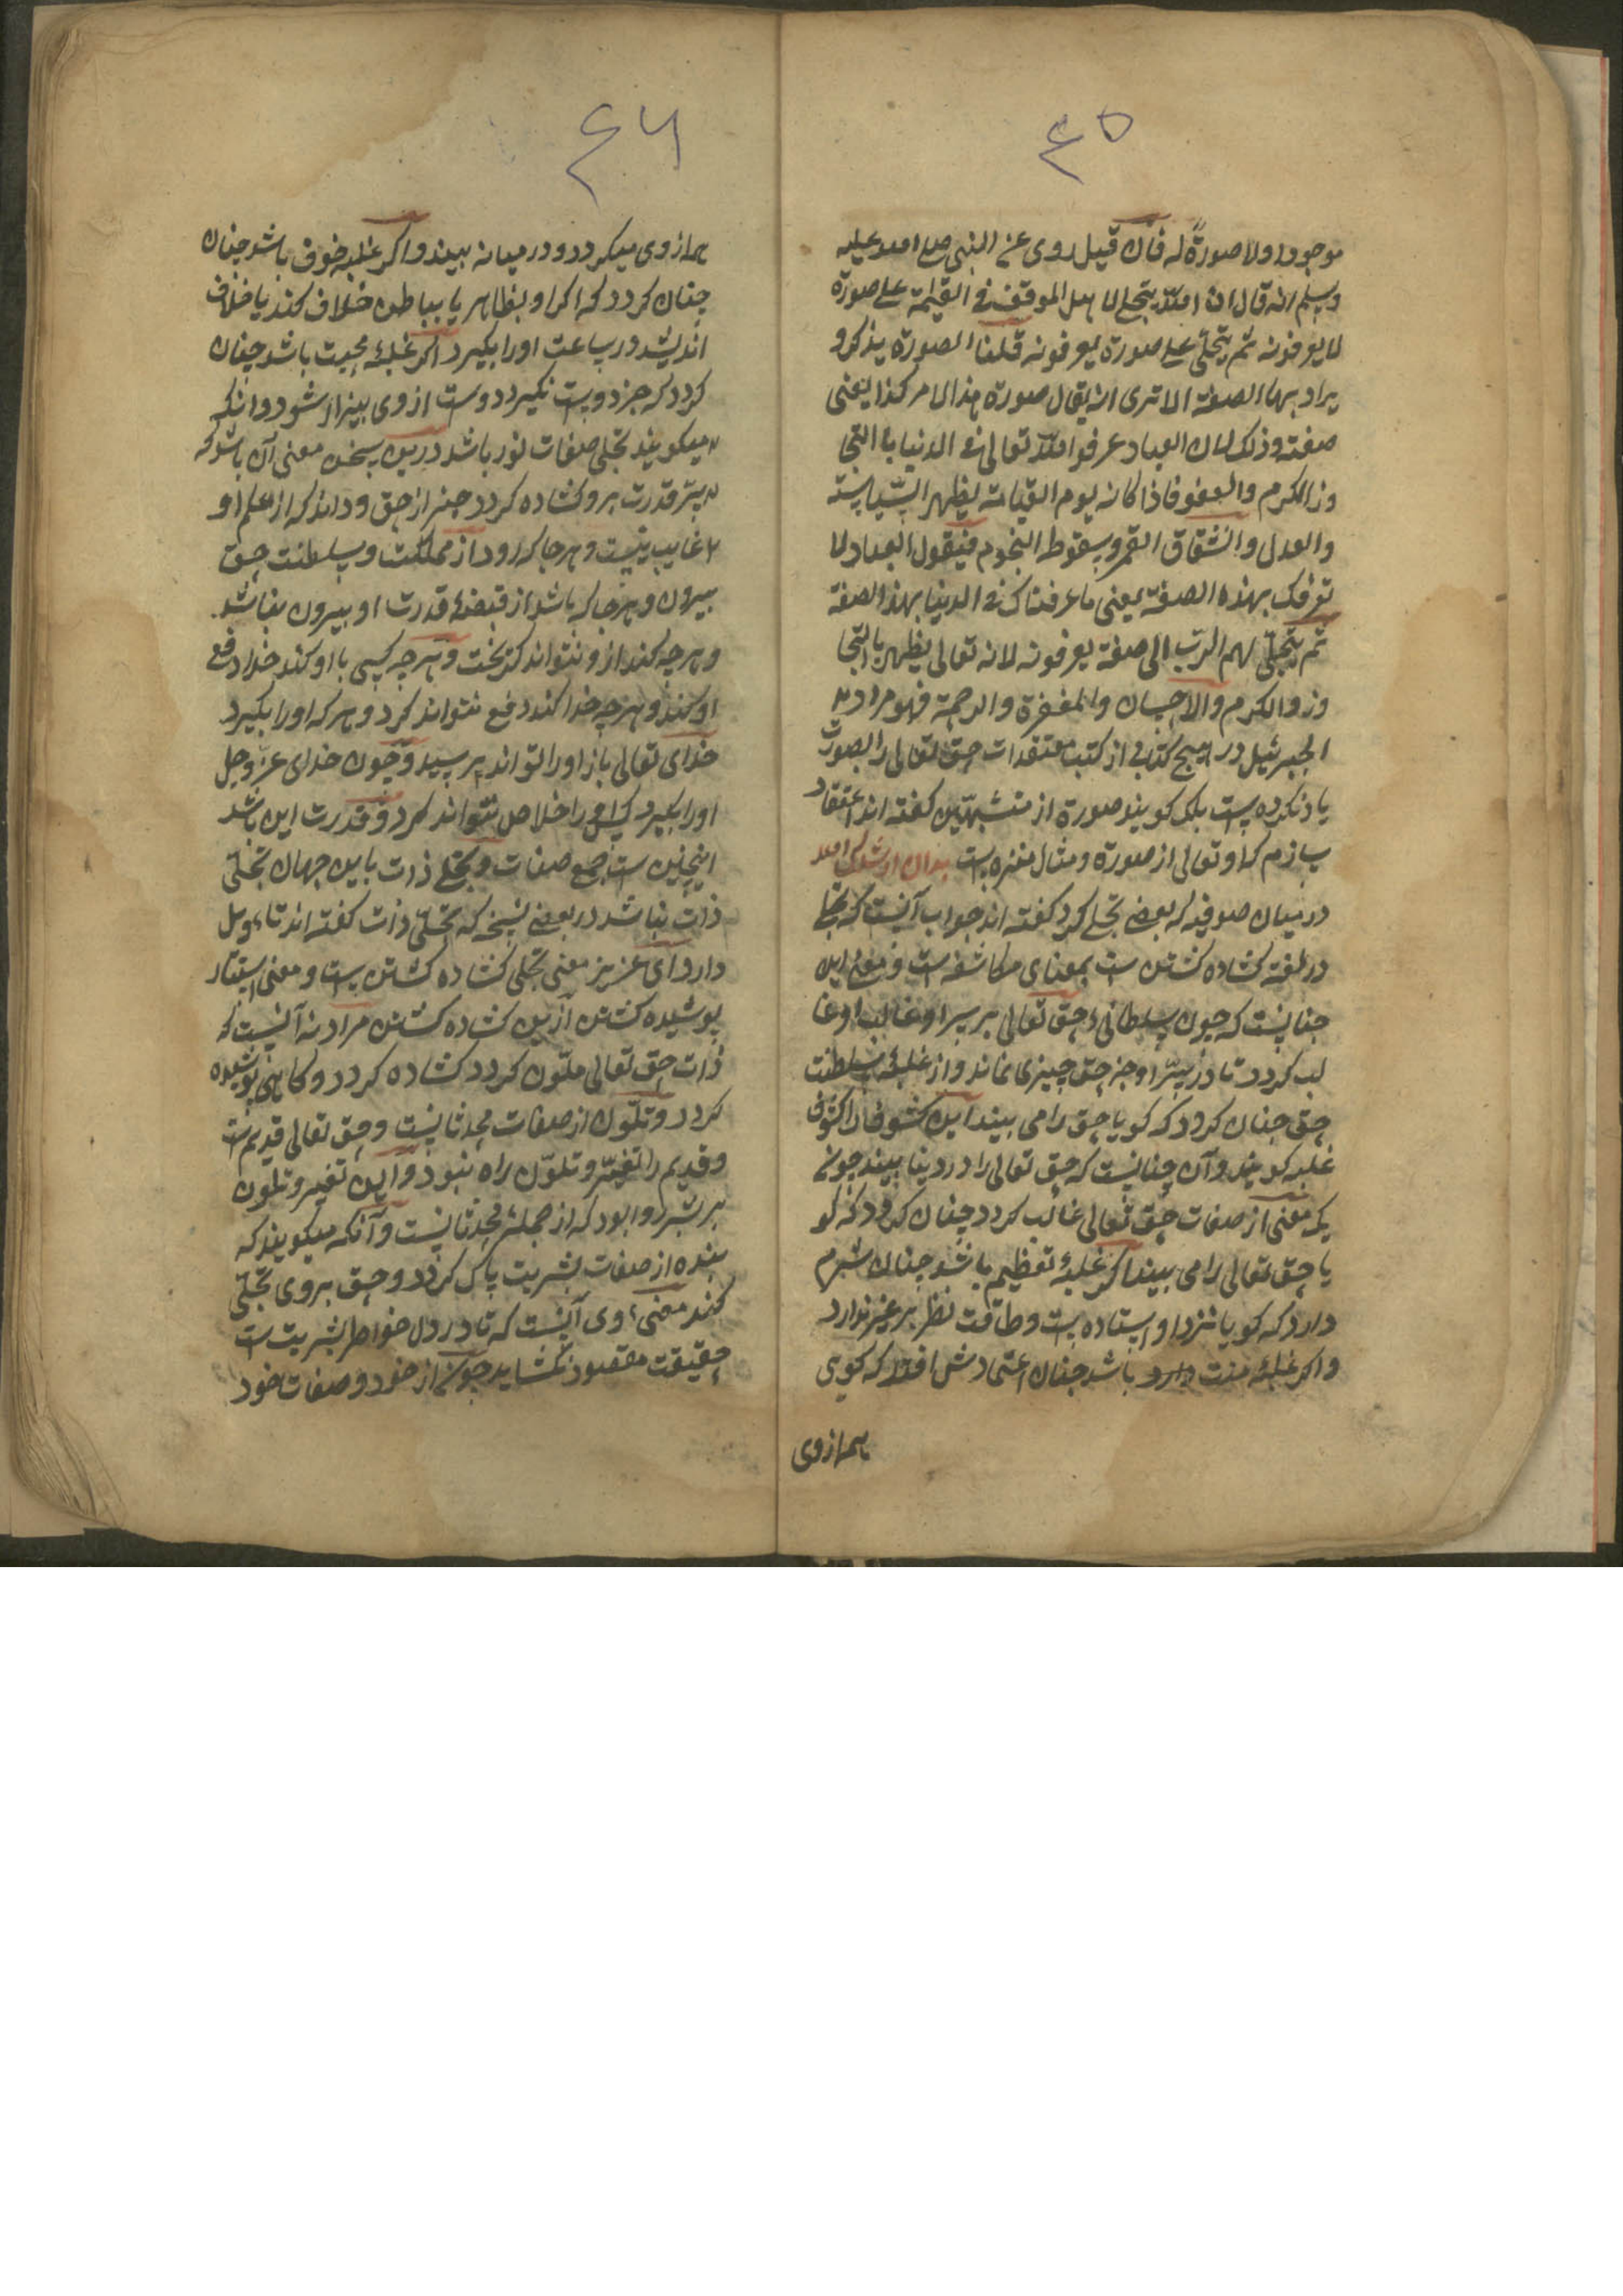 ٤٥
موجودا ولا صورة له فان قيل روى عن النبى صلى الله عليه
وسلم انه قال ان الله يتجلى لا هل الموقف فى القيمة على صورة
لا يعرفونه ثم يتجلى على صورة يعرفونه قلنا الصورة يذكر و
يراد بها الصفة الا ترى انه يقال صورة هذا الامر كذا يعنى
صفته وذلك لان العباد عرفوا الله تعالى فى الدنيا با التجا
وز الكرم والعفو فاذا كانه يوم القيامة يظهر السياسة
والعدل وانشقاق القمر وسقوط النجوم فيقول العباد لا
نعرفك بهذه الصفة يعنى ما عرفناك فى الدنيا بهذ الصفة
ثم يتجلى لهم الرب الى صفة يعرفونه لانه تعالى يظهر بالتجا
وز والكرم والاحسان والمغفرة والرحمة فهو مراد يد
الجبرئيل در هيچ كتابى از كتب معتقدات حق تعالى را بصورت
ياد نكرده ست بلك كويند صورة از متشبهين كفته اند اعتقاد
سازم كه او تعالى از صورة ومثال منزه ست بدان ارشدك الله
در ميان صوفيه كه بعضى تجلى كرد كفته اند جواب آنست كه تجلى
در لغة كشاده كشتن ست بمعناى مكاشفه ست و معنى اين
چنانست كه چون سلطانى حق تعالى بر سر او غالب او غا
لب كردد تا در سر او جز حق چيزى نماند و از غلبهٔ سلطنت
حق چنان كردد كه كويا حق را مى بيند اين كشوفا را كنون
غلبه كويند و آن چنانست كه حق تعالى را در دنيا بيند چونى
يكه معنى از صفات حق تعالى غالب كردد چنان كردد كه كو
يا حق تعالى را مى بيند اكر غلبهٔ تعظيم باشد چنان شرم
دارد كه كويا نزد او استاده ست وطاقت نظر بر غير ندارد
واكر غلبهٔ منت دارد باشد چنان اعتمادش افتد كه كويى
همه از وى
٤٦
همه از وى ميكردد و در ميانه نبيند واكر غلبه خوف باشد چنان
چنان كردد كه اكر او بظاهر يا بباطن خلاف كند يا خلاف
انديشد در ساعت اورا بكيرد اكر غلبهٔ محبت باشد چنان
كردد كه جز دوست نكيرد دوست از وى بيزار شود و انكه
ميكويند تجلى صفات نور باشد درين سخن معنى آن باشد كه
سر قدرت برو كشاده كردد جز از حق و داند كه از علم او
غايب نيست و هر جا كه رود از مملكت و سلطنت حق
بيرون و هر جا كه باشد از قبضهٔ قدرت او بيرون نباشد
و هر چه كند از و نتواند كريخت و هر چه كسى با او كند خدا دفع
او كند و هر چه خدا كند دفع نتواند كرد و هر كه اورا بكيرد
خداى تعالى باز اورا تواند پرسيد و چون خداى عز وجل
اورا بكيرد كسى را خلاص نتواند كرد و قدرت اين باشد
اينچنين ست جمع صفات و تجلى ذات باين جهان تجلى
ذات نباشد در بعضى نسخ كه تجلى ذات كفته اند تاويل
دارد اى عزيز معنى تجلى كشاده كشتن ست و معنى استتار
پوشيده كشتن ازين كشاده كشتن مراد نه آنست كه
ذات حق تعالى ملون كردد كشاده كردد و كاهى پوشيده
كردد و تلون از صفات محدثانست و حق تعالى قديم ست
و قديم را تغير و تلون راه نبود و اين تغير و تلون
بر بشر روا بود كه از جملهٔ محدثانست و آنكه ميكويند كه
بنده از صفات بشريت پاك كردد و حق بروى تجلى
كند معنى وى آنست كه تا در دل خواطر بشريت ست
حقيقت مقصود نكشايد چونى از خود و صفات خود